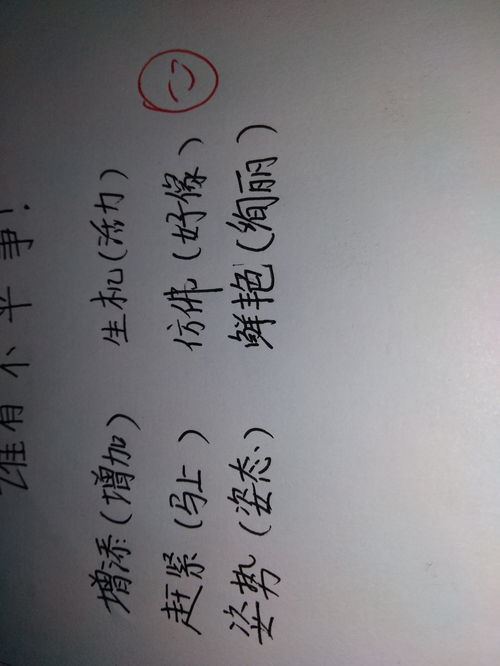 谁有不平事！
增添（增加） 生机（活力）
赶紧（马上） 仿佛（好像）
姿势（姿态） 鲜艳（绚丽）